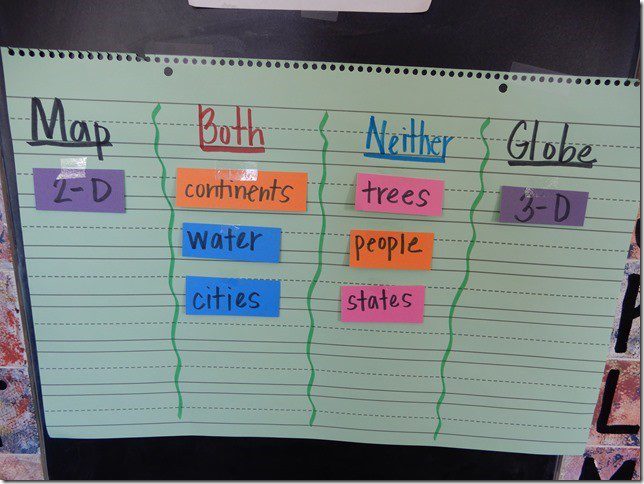 Map
Both
Neither
Globe
2-D
continents
water
cities
trees
people
states
3-D
P
L